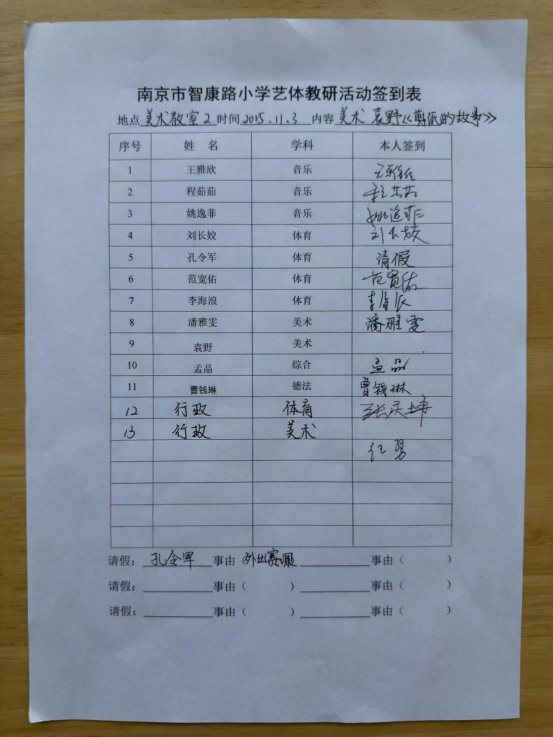 南京市智康路小学艺体教研活动签到表
地点 美术教室2 时间 2025.11.3 内容 美术 袁野《剪纸的故事》
序号 姓名 学科 本人签到
1 王雅欣 音乐 王雅欣
2 程茹茹 音乐 程茹茹
3 姚逸菲 音乐 姚逸菲
4 刘长姣 体育 刘长姣
5 孔令军 体育 请假
6 范宽佑 体育 范宽佑
7 李海浪 体育 李海浪
8 潘雅雯 美术 潘雅雯
9 袁野 美术
10 孟晶 综合 孟晶
11 曹钱琳 德法 曹钱琳
12 行政 体育
13 行政 美术
请假: 孔令军 事由 外出赛课 事由( )
请假: 事由( ) 事由( )
请假: 事由( ) 事由( )